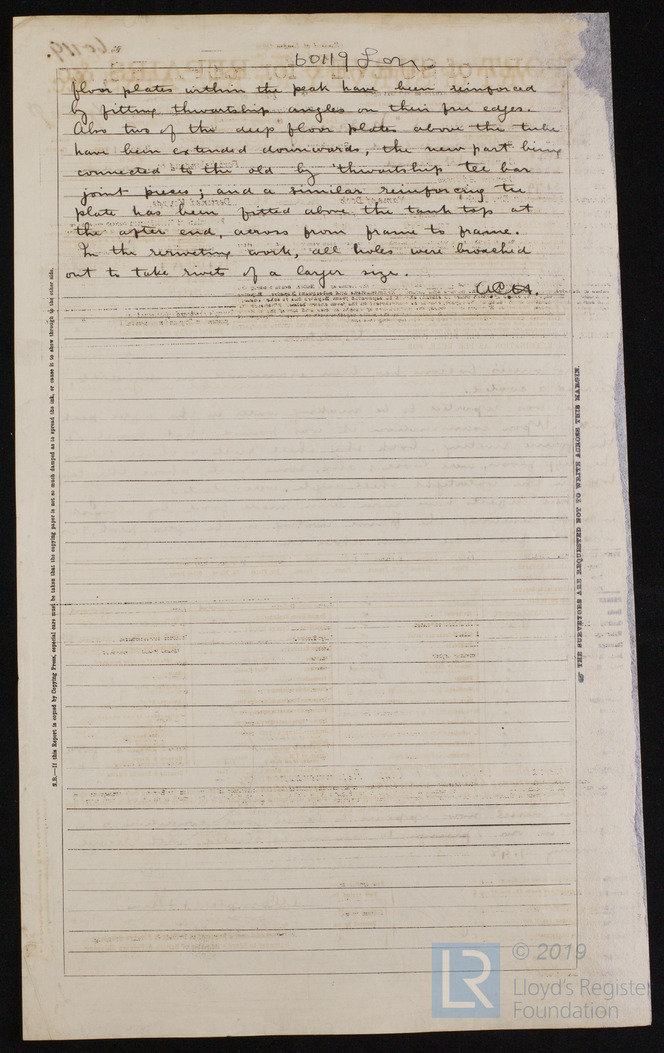 60119 Lon.
floor plates within the peak have been reinforced
by fitting thwartship angles on their free edges.
Also two of the deep floor plates above the tube
have been extended downwards, the new part being
connected to the old by thwartship tee bar
joint pieces; and a similar reinforcing tie
plate has been fitted above the tank top at
the after end, across from frame to frame.
In the reriveting work, all holes were broached
out to take rivets of a larger size.
N.B.—If this Report is copied by Copying Press, especial care must be taken that the copying paper is not so much damped as to spread the ink, or cause it to show through to the other side.
THE SURVEYORS ARE REQUESTED NOT TO WRITE ACROSS THIS MARGIN.
LR
© 2019
Lloyd's Register
Foundation